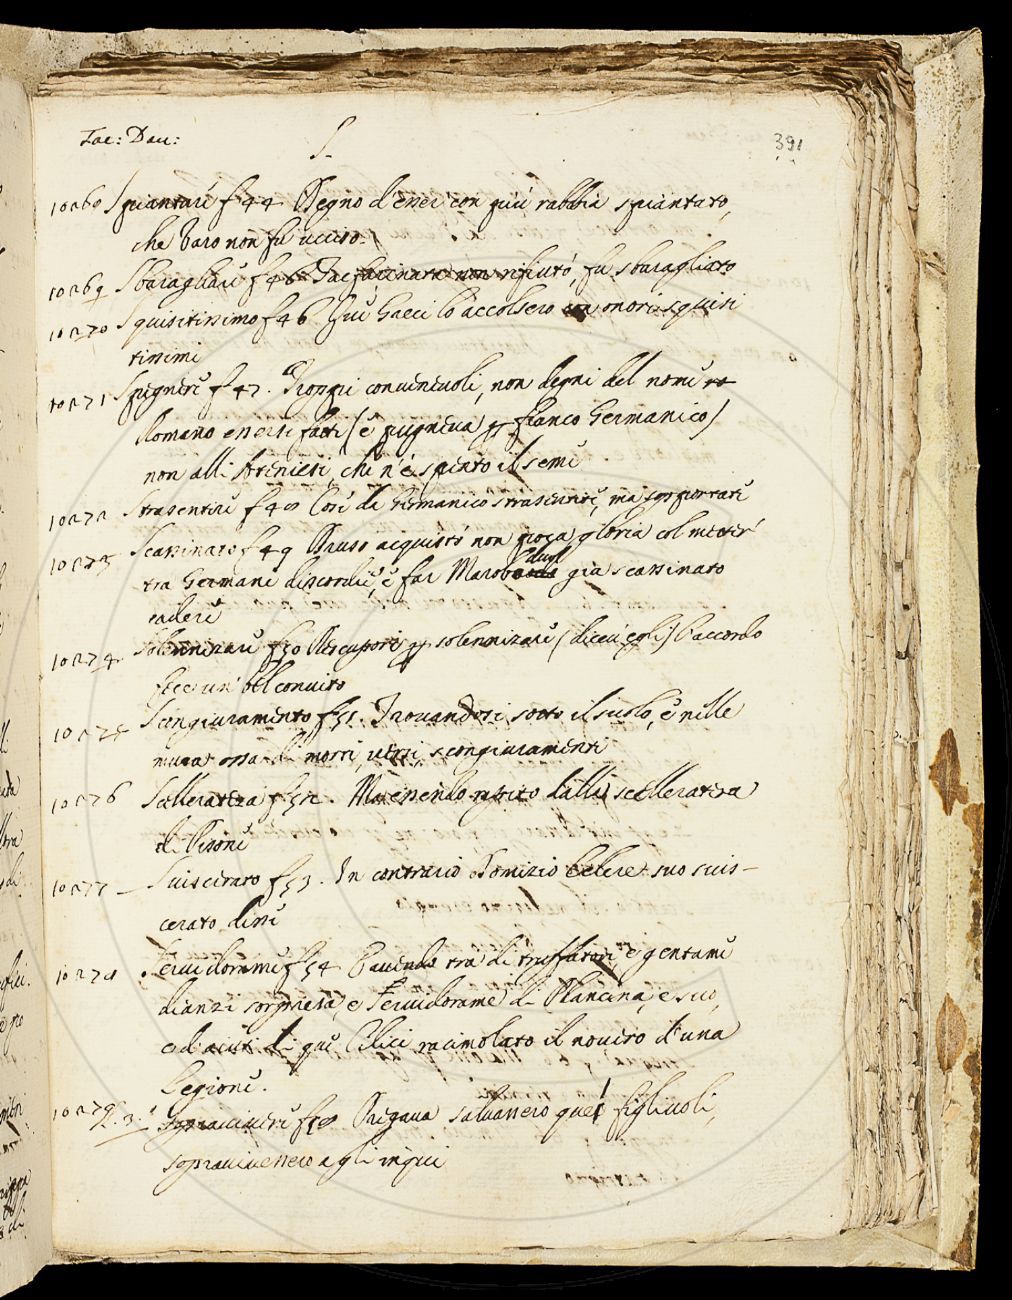 Tac: Dau:
S.
391
10268 Spiantare f 44 Regno d'enei con più rabbia spiantato,
che Varo non fu ucciso.
10269 Sbaragliare f 46 rifiutò, fu sbaragliato
10270 Squisitissimo f 46 Qui Greci lo accolsero onori squisi
tissimi
10271 Spignere f 47. Troppi convenevoli, non degni del nome
Romano essersi fatti (e pugneva fianco Germanico)
non alli Ateniesi, che n'è spento il seme
10272 Strasentire f 48 Così da Germanico strasentire, ma sopportare
10273 Scassinato f 49 Druso acquistò non poca gloria col metter
tra Germani discordie, e far Marobduo già scassinato
cadere
10274 Solennizare f 50 Rescupori solennizare (dicev' egli) l'accordo
fece un bel convito
10275 Scongiuramento f 51. Trovandosi sotto il suolo, e nelle
mura ossa di morti, versi, scongiuramenti
10276 Scelleratezza f 52. Ma essendo rapito dalla scelleratezza
di Pisone
10277 Sviscerato f 53. In contrario Domizio Celere suo svis-
cerato disse
10278 Servidorame f 54 Havendo tra di truffatori e gentame
dianzi sorpresa, e servidorame di Plancina, e suo,
ed aiuti di que' Cilici racimolato il novero d'una
Legione.
10279 Sopravivere f 58 Pregava salvassero que' figliuoli,
sopravivessero agli